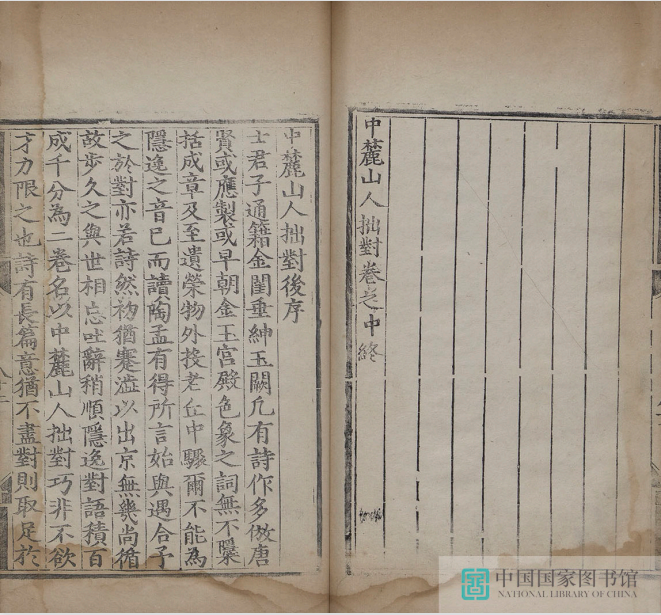 中麓山人拙對卷之中終
中麓山人拙對後序
士君子通籍金閨垂紳玉闕凡有詩作多倣唐
賢或應製或早朝金玉宮殿色象之詞無不檃
括成章及至遺榮物外投老丘中驟爾不能為
隱逸之音已而讀陶孟有得所言始與遇合予
之於對亦若詩然初猶蹇澁以出京無幾尚循
故步久之與世相忘吐辭稍順隱逸對語積百
成千分為二卷名以中麓山人拙對巧非不欲
才力限之也詩有長篇意猶不盡對則取足於
中国国家图书馆
NATIONAL LIBRARY OF CHINA